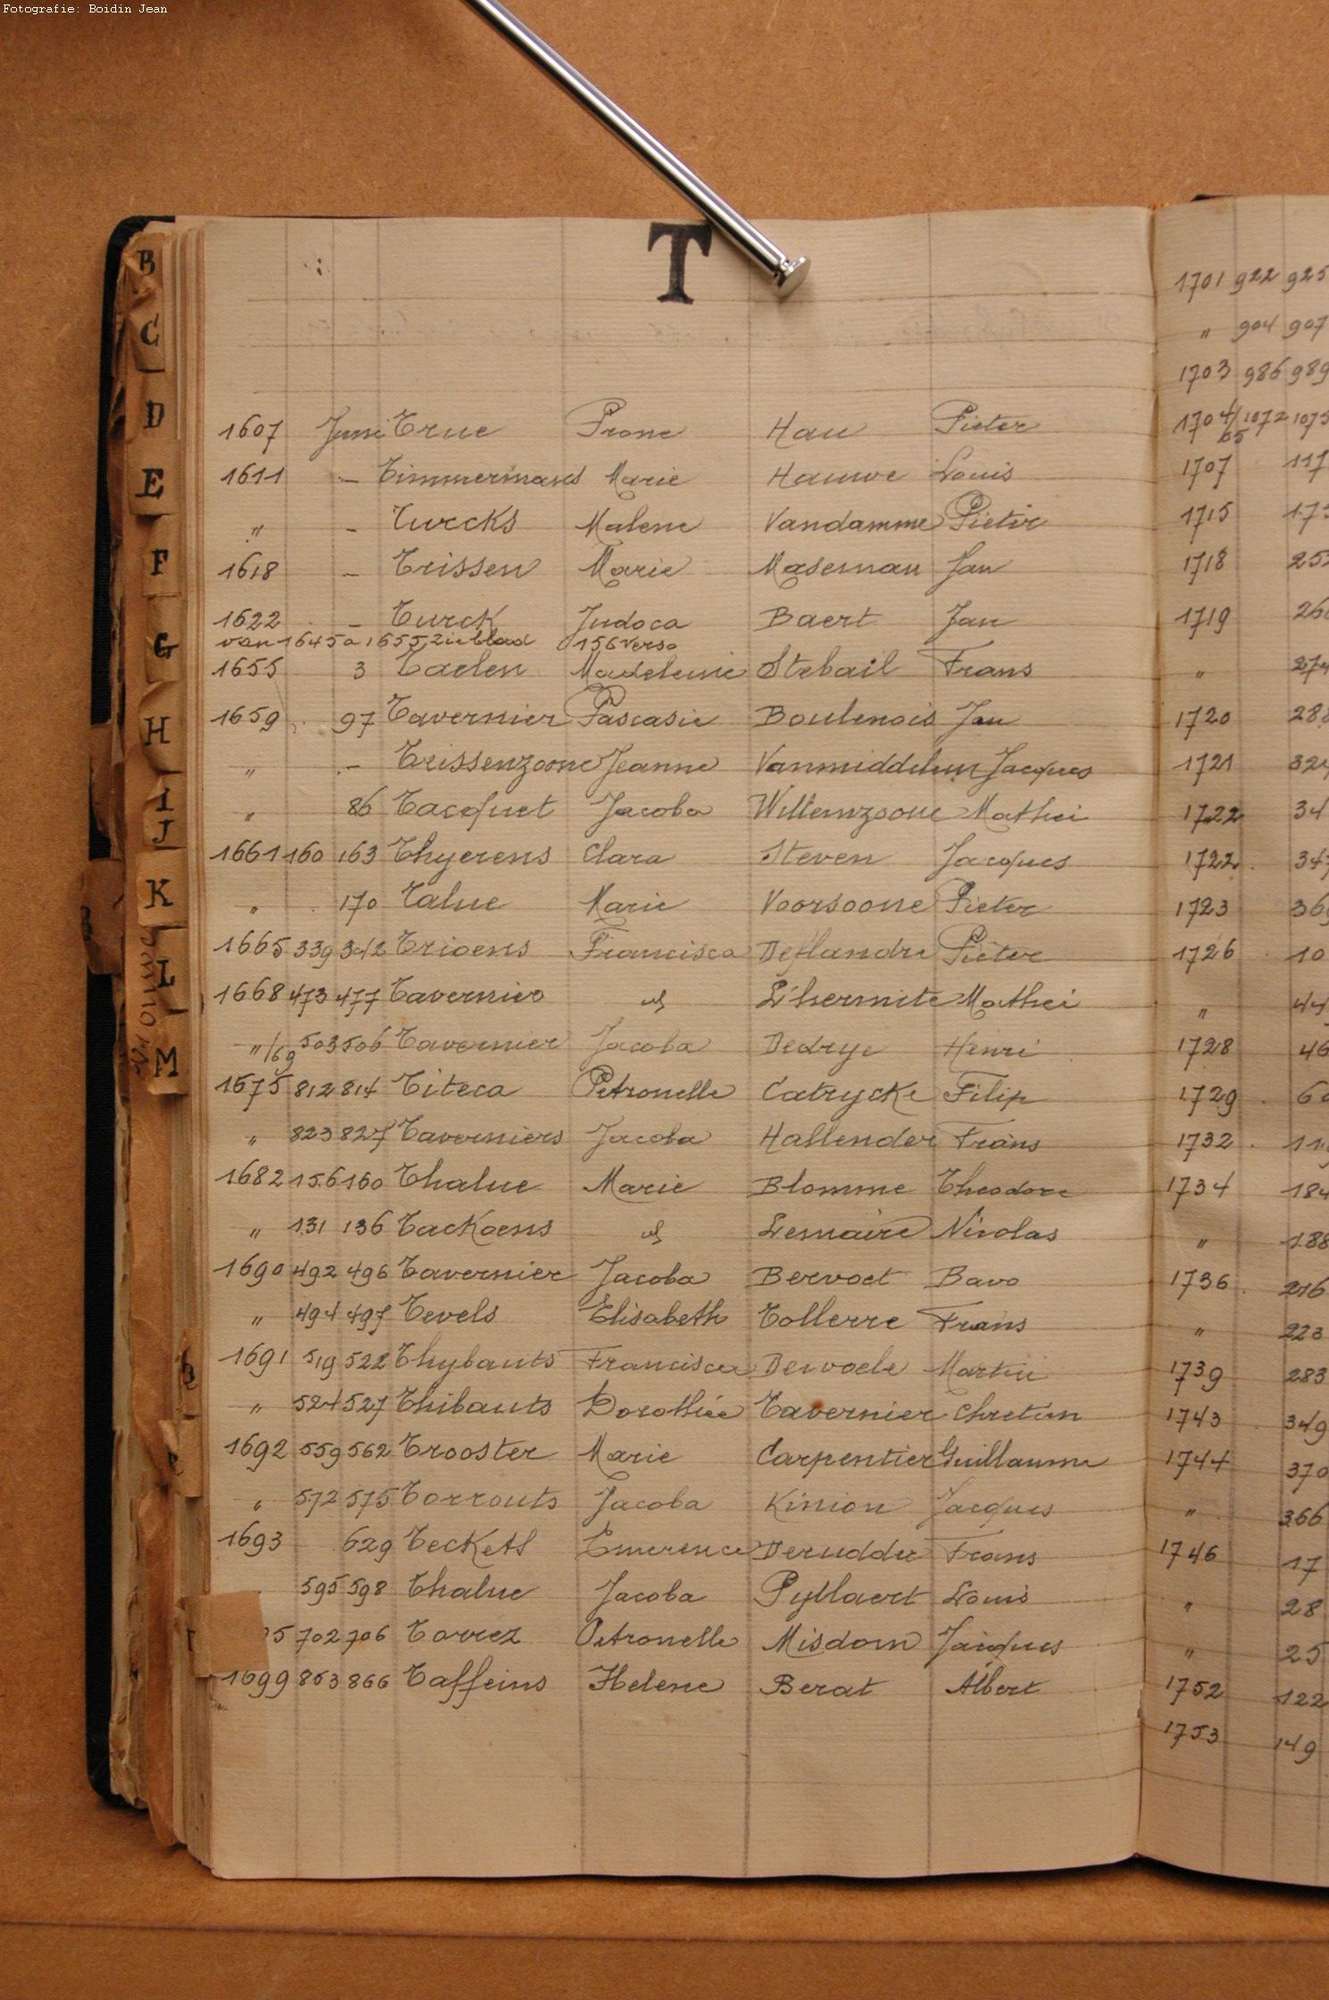 Fotografie: Boidin Jean
T
B
C
D
E
F
G
H
I
J
K
L
M
1607 Juni True Prone Hau Pieter
1611 - Timmermans Marie Hauwe Louis
" - Turcks Malene Vandamme Pieter
1618 - Trissen Marie Maseman Jan
1622 - Turck Judoca Baert Jan
van 1645 a 1655 zie blad 156 verso
1655 3 Taelen Madeleine Stebail Frans
1659 97 Tavernier Pascasie Boulenois Jan
" - Trissenzoone Jeanne Vanmiddelem Jacques
" 86 Tacquet Jacoba Willemzoone Mathei
1661 160 163 Thyerens Clara Steven Jacques
" 170 Talue Marie Voorsoone Pieter
1665 339 342 Trioens Francisca Deflandre Pieter
1668 473 477 Tavernier id L'hermite Mathei
"/69 503 506 Tavernier Jacoba Dedrye Henri
1675 812 814 Titeca Petronelle Catrycke Filip
" 823 827 Taverniers Jacoba Hallender Frans
1682 156 160 Thalue Marie Blomme Theodore
" 131 136 Tackoens id Lemaire Nicolas
1690 492 496 Tavernier Jacoba Bervoet Bavo
" 494 497 Tevels Elisabeth Tollerre Frans
1691 519 522 Thybauts Francisca Dervoele Martin
" 524 527 Thibauts Dorothée Tavernier Chretien
1692 559 562 Trooster Marie Carpentier Guillaume
" 572 575 Torrouts Jacoba Kinion Jacques
1693 629 Teckels Emerence Deruddre Frans
595 598 Thalue Jacoba Pyllaert Louis
5 702 706 Torrez Petronelle Misdom Jacques
1699 863 866 Taffeins Helene Berat Albert
1701 922 925
" 904 907
1703 986 989
1704/05 1072 1075
1707 117
1715
1718
1719
"
1720
1721
1722 34
1722
1723
1726 10
" 44
1728 46
1729
1732
1734 184
" 188
1736 216
" 223
1739 283
1743 349
1744 370
" 366
1746 17
" 28
" 25
1752 122
1753 149